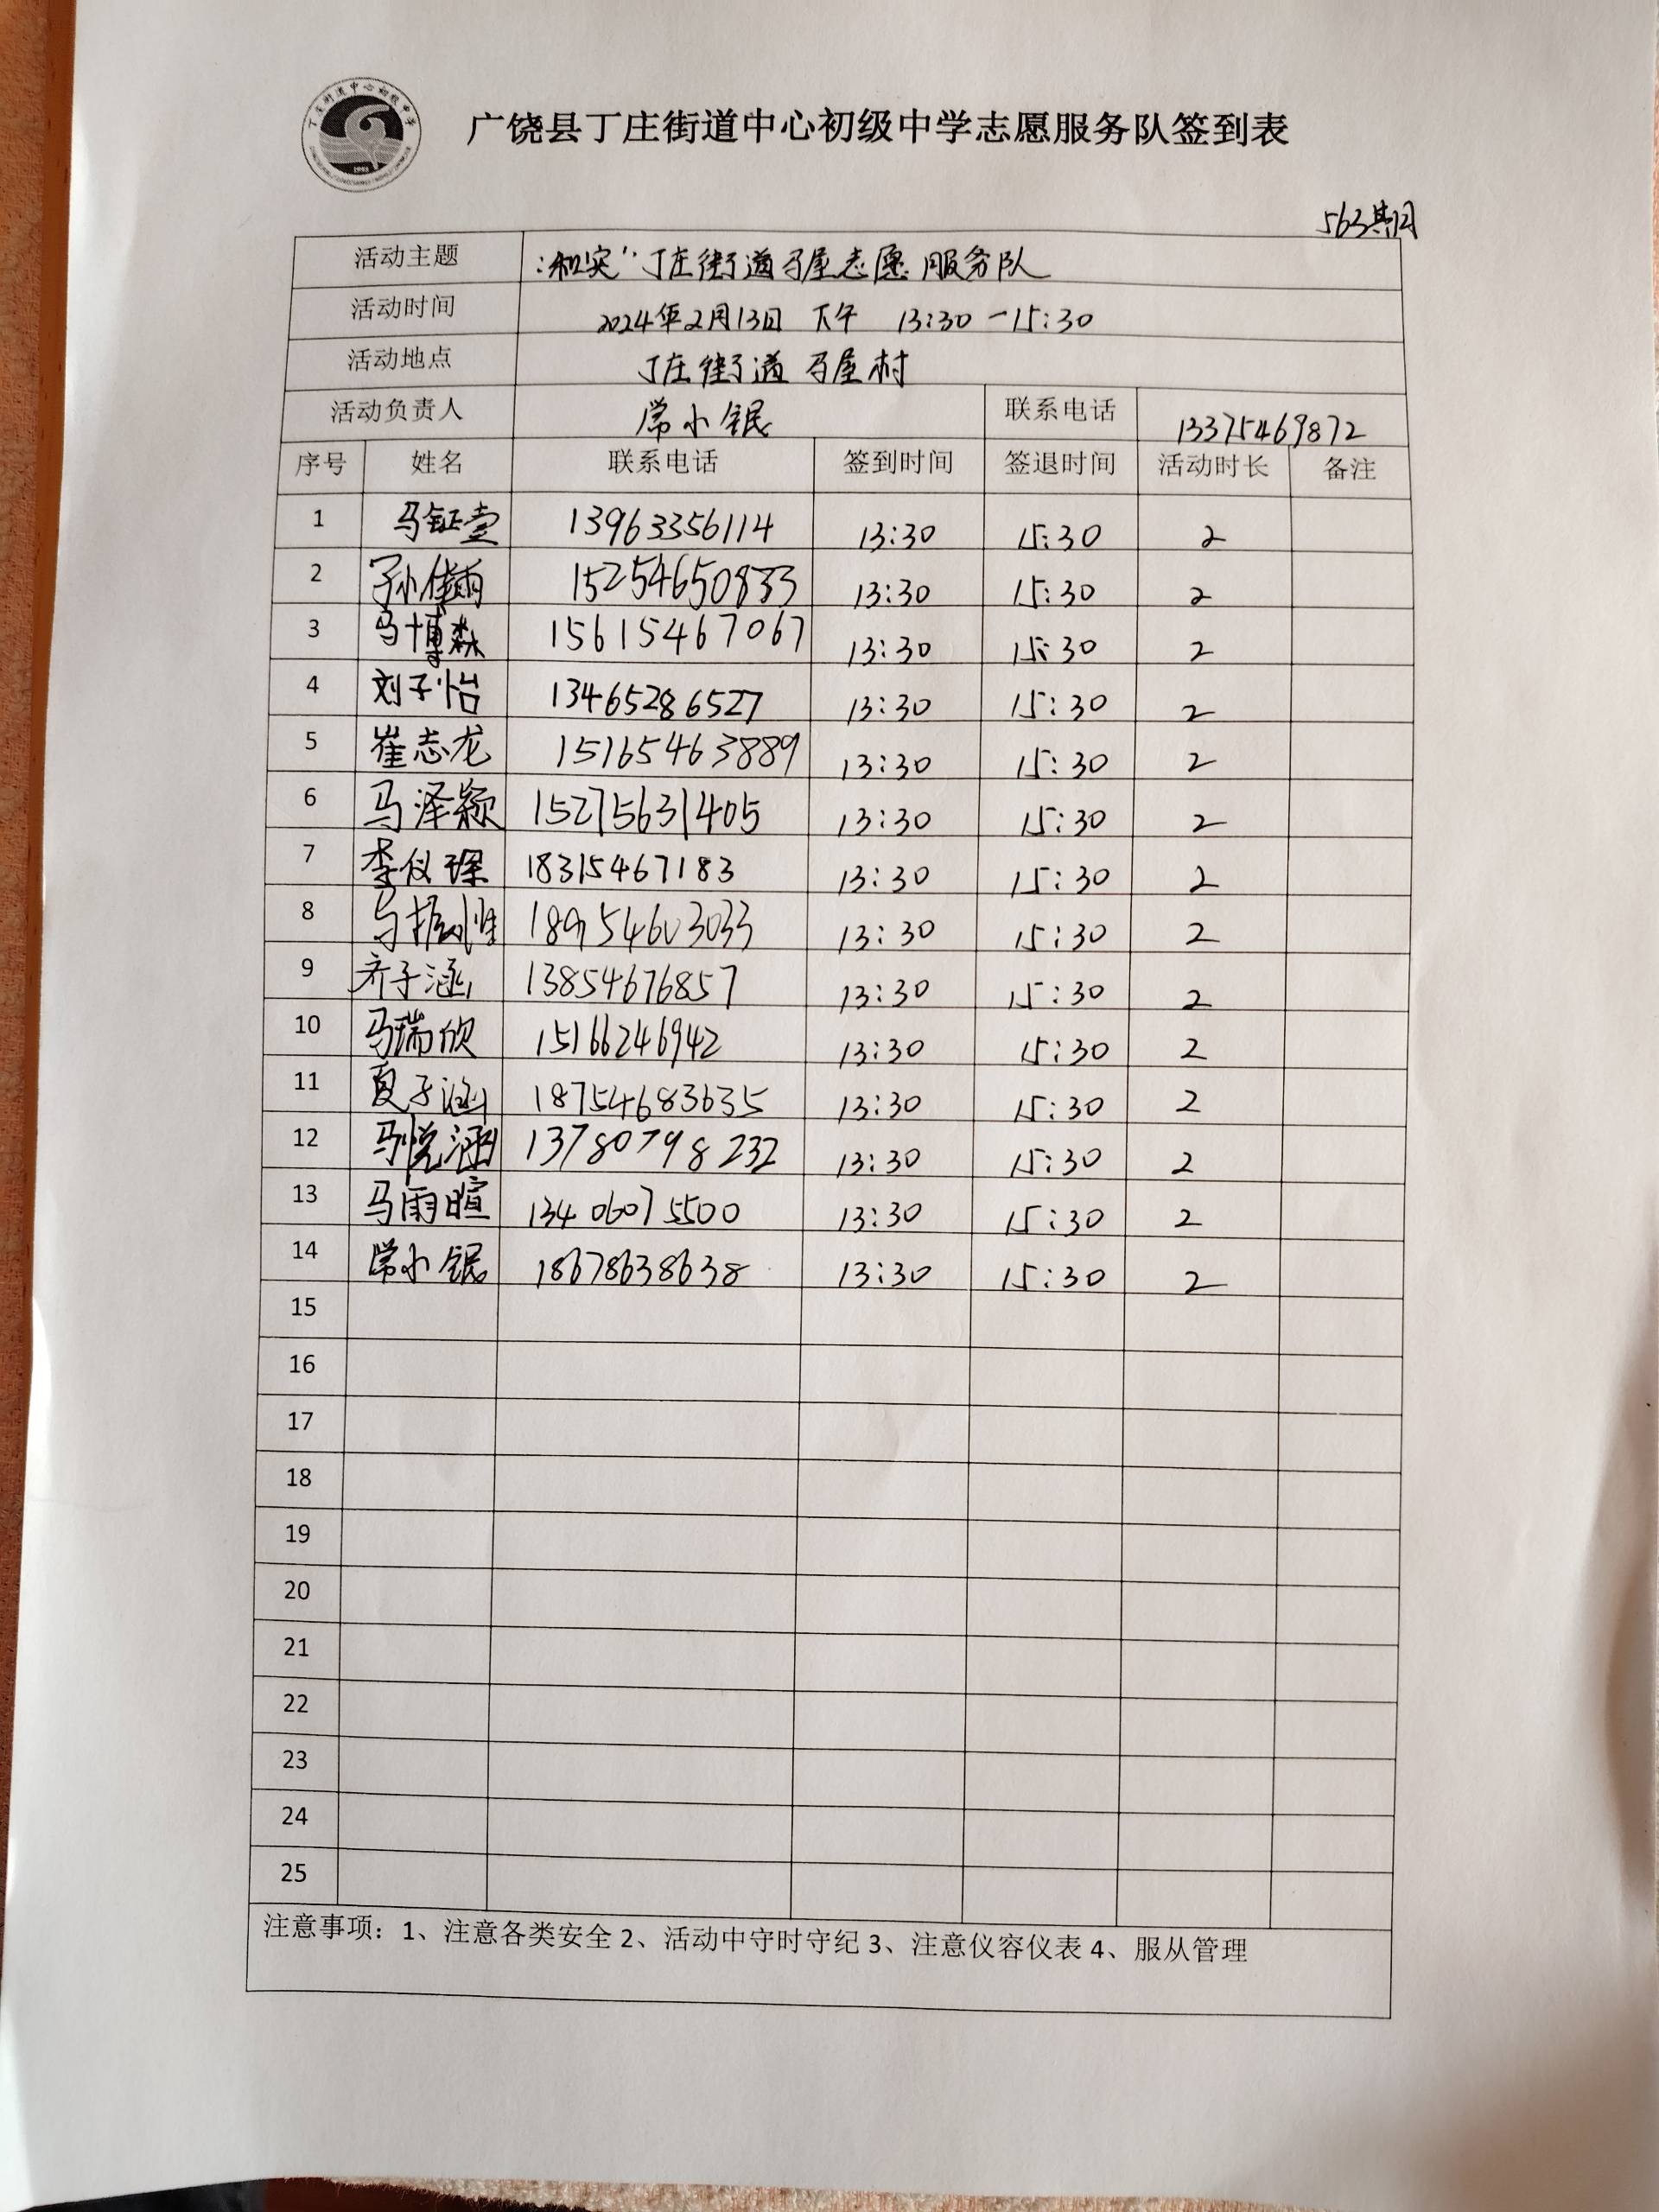 广饶县丁庄街道中心初级中学志愿服务队签到表
563期
活动主题 "和实"丁庄街道马屋志愿服务队
活动时间 2024年2月13日 下午 13:30-15:30
活动地点 丁庄街道马屋村
活动负责人 常小银 联系电话 13375469872
序号 姓名 联系电话 签到时间 签退时间 活动时长 备注
1 马钲壹 13963356114 13:30 15:30 2
2 孙佳雨 15254650833 13:30 15:30 2
3 马博森 15615467067 13:30 15:30 2
4 刘子怡 13465286527 13:30 15:30 2
5 崔志龙 15165463889 13:30 15:30 2
6 马泽颖 15275631405 13:30 15:30 2
7 李仪琛 18315467183 13:30 15:30 2
8 13:30 15:30 2
9 齐子涵 13854676857 13:30 15:30 2
10 马瑞欣 15166246942 13:30 15:30 2
11 夏子涵 18754683635 13:30 15:30 2
12 马悦涵 13780798232 13:30 15:30 2
13 马雨暄 13406075500 13:30 15:30 2
14 常小银 18678638638 13:30 15:30 2
15
16
17
18
19
20
21
22
23
24
25
注意事项：1、注意各类安全 2、活动中守时守纪 3、注意仪容仪表 4、服从管理